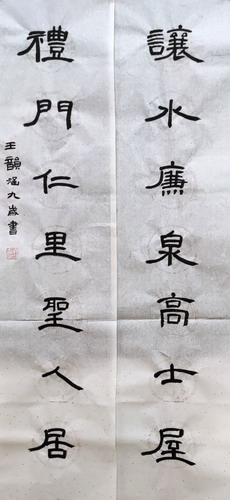 讓水廉泉高士屋
禮門仁里聖人居
王韻涵九歲書